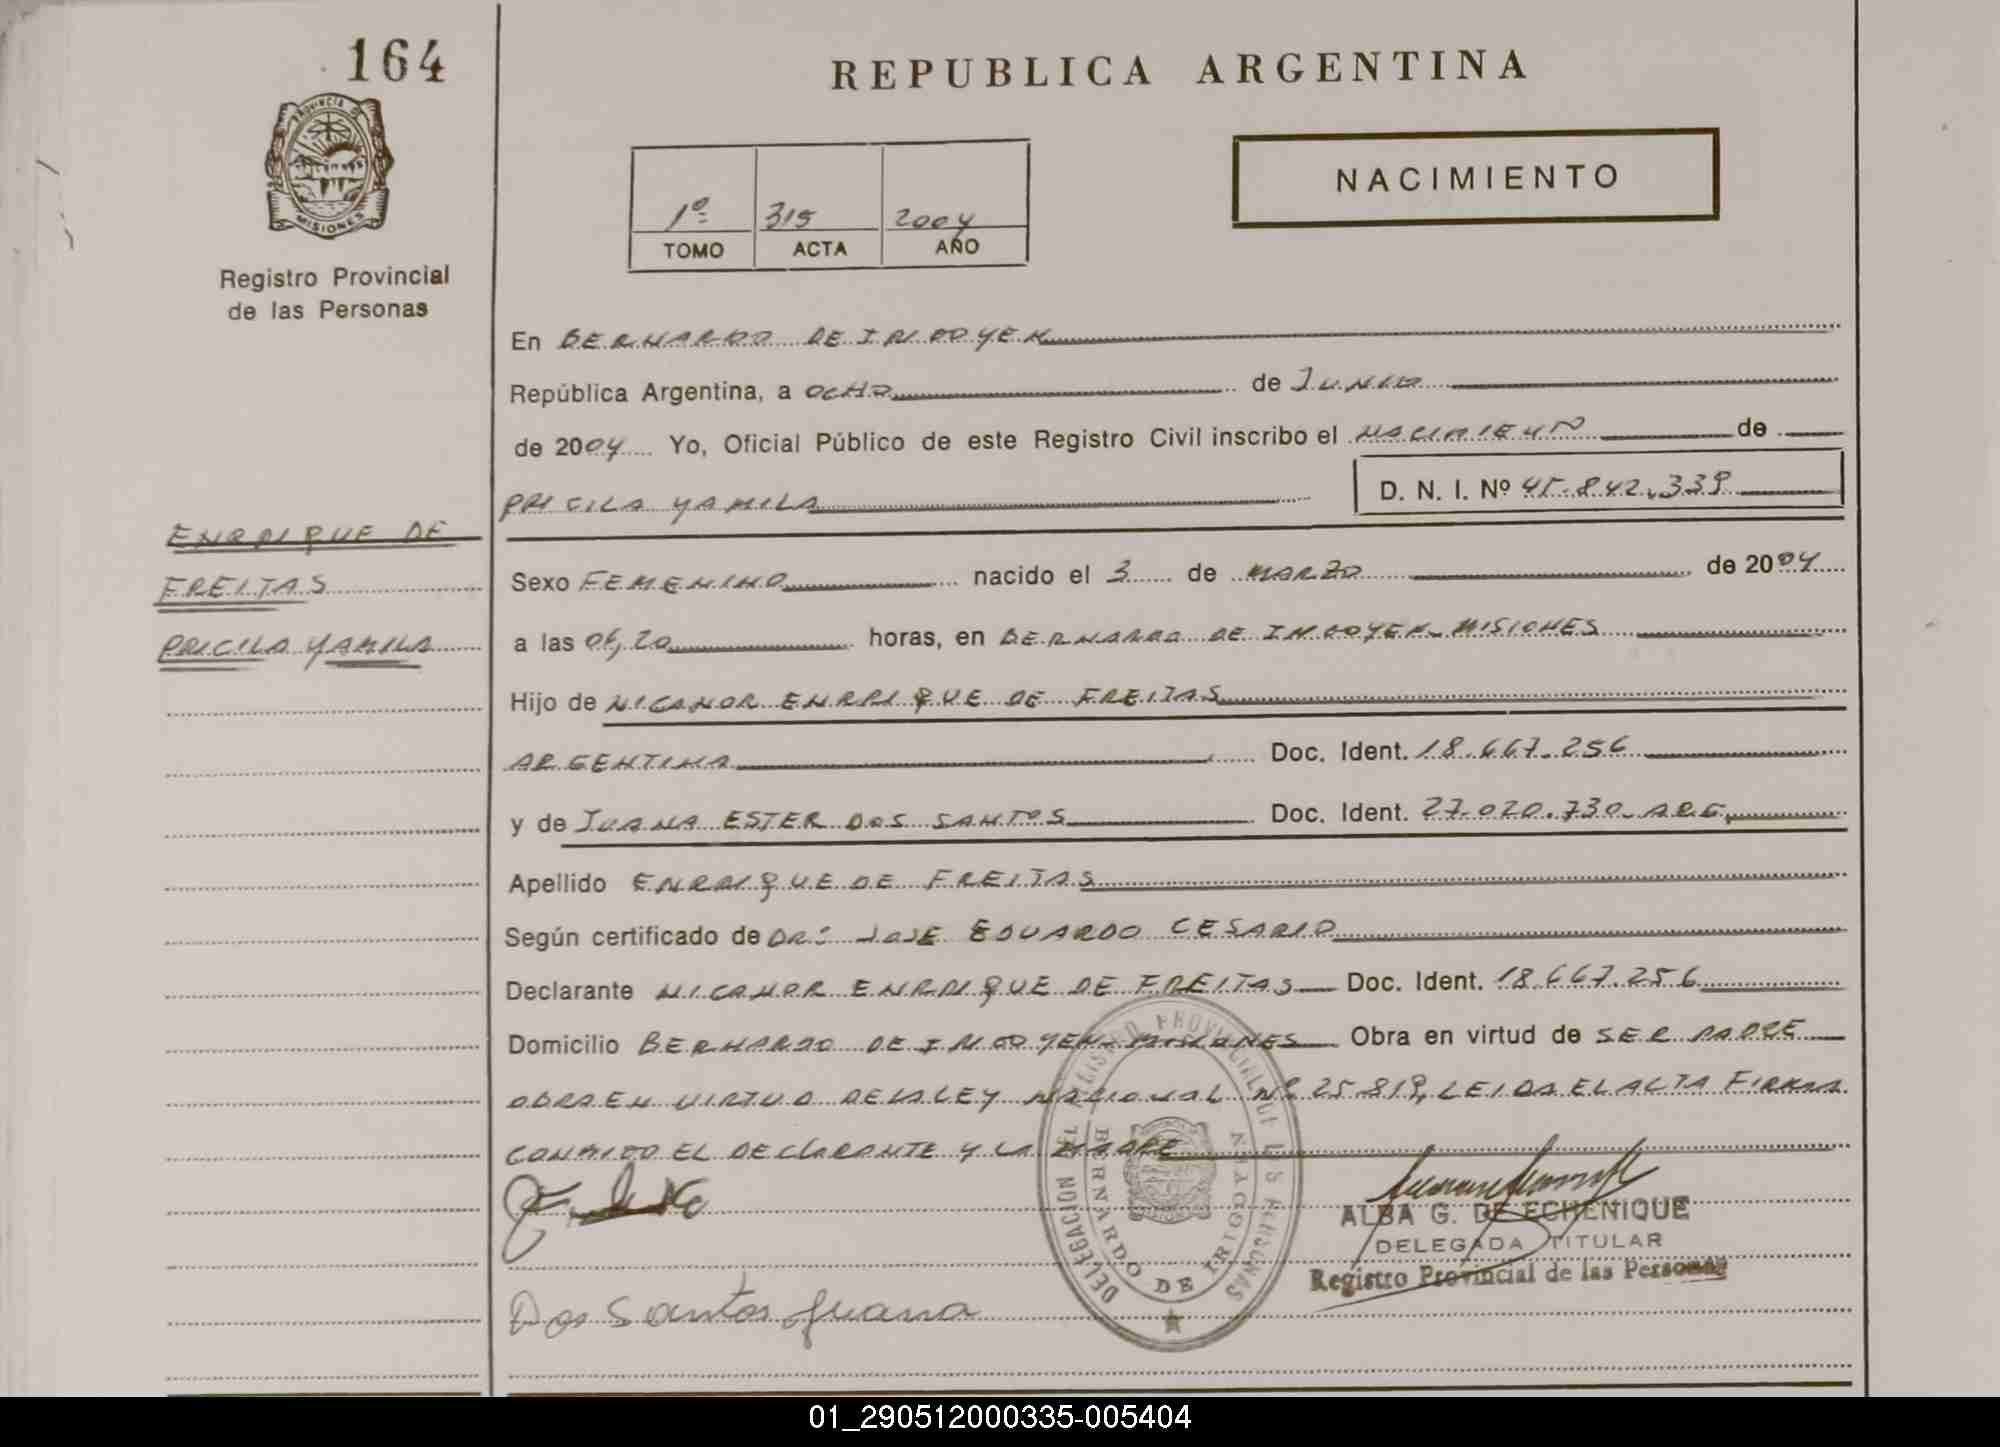 164
REPUBLICA ARGENTINA
PROVINCIA DE
MISIONES
Registro Provincial
de las Personas
1º 315 2004
TOMO ACTA AÑO
NACIMIENTO
En BERNARDO DE IRIGOYEN
República Argentina, a OCHO de JUNIO
de 2004 Yo, Oficial Público de este Registro Civil inscribo el NACIMIENTO de
PRICILA YAMILA D. N. I. Nº 45.842.339
ENRRIQUE DE
FREITAS
PRICILA YAMILA
Sexo FEMENINO nacido el 3 de MARZO de 2004
a las 06,20 horas, en BERNARDO DE IRIGOYEN-MISIONES
Hijo de NICANOR ENRRIQUE DE FREITAS
ARGENTINA Doc. Ident. 18.667.256
y de JUANA ESTER DOS SANTOS Doc. Ident. 27.020.730-ARG.
Apellido ENRRIQUE DE FREITAS
Según certificado de DR: JOSE EDUARDO CESARIO
Declarante NICANOR ENRRIQUE DE FREITAS Doc. Ident. 18.667.256
Domicilio BERNARDO DE IRIGOYEN-MISIONES Obra en virtud de SER PADRE
OBRA EN VIRTUD DE LA LEY NACIONAL Nº 25.819, LEIDA EL ACTA FIRMAN
CONMIGO EL DECLARANTE Y LA MADRE
REGISTRO PROVINCIAL DE LAS PERSONAS
DELEGACION
BERNARDO DE IRIGOYEN
ALBA G. DE ECHENIQUE
DELEGADA TITULAR
Registro Provincial de las Personas
Dos Santos Juana
01_290512000335-005404